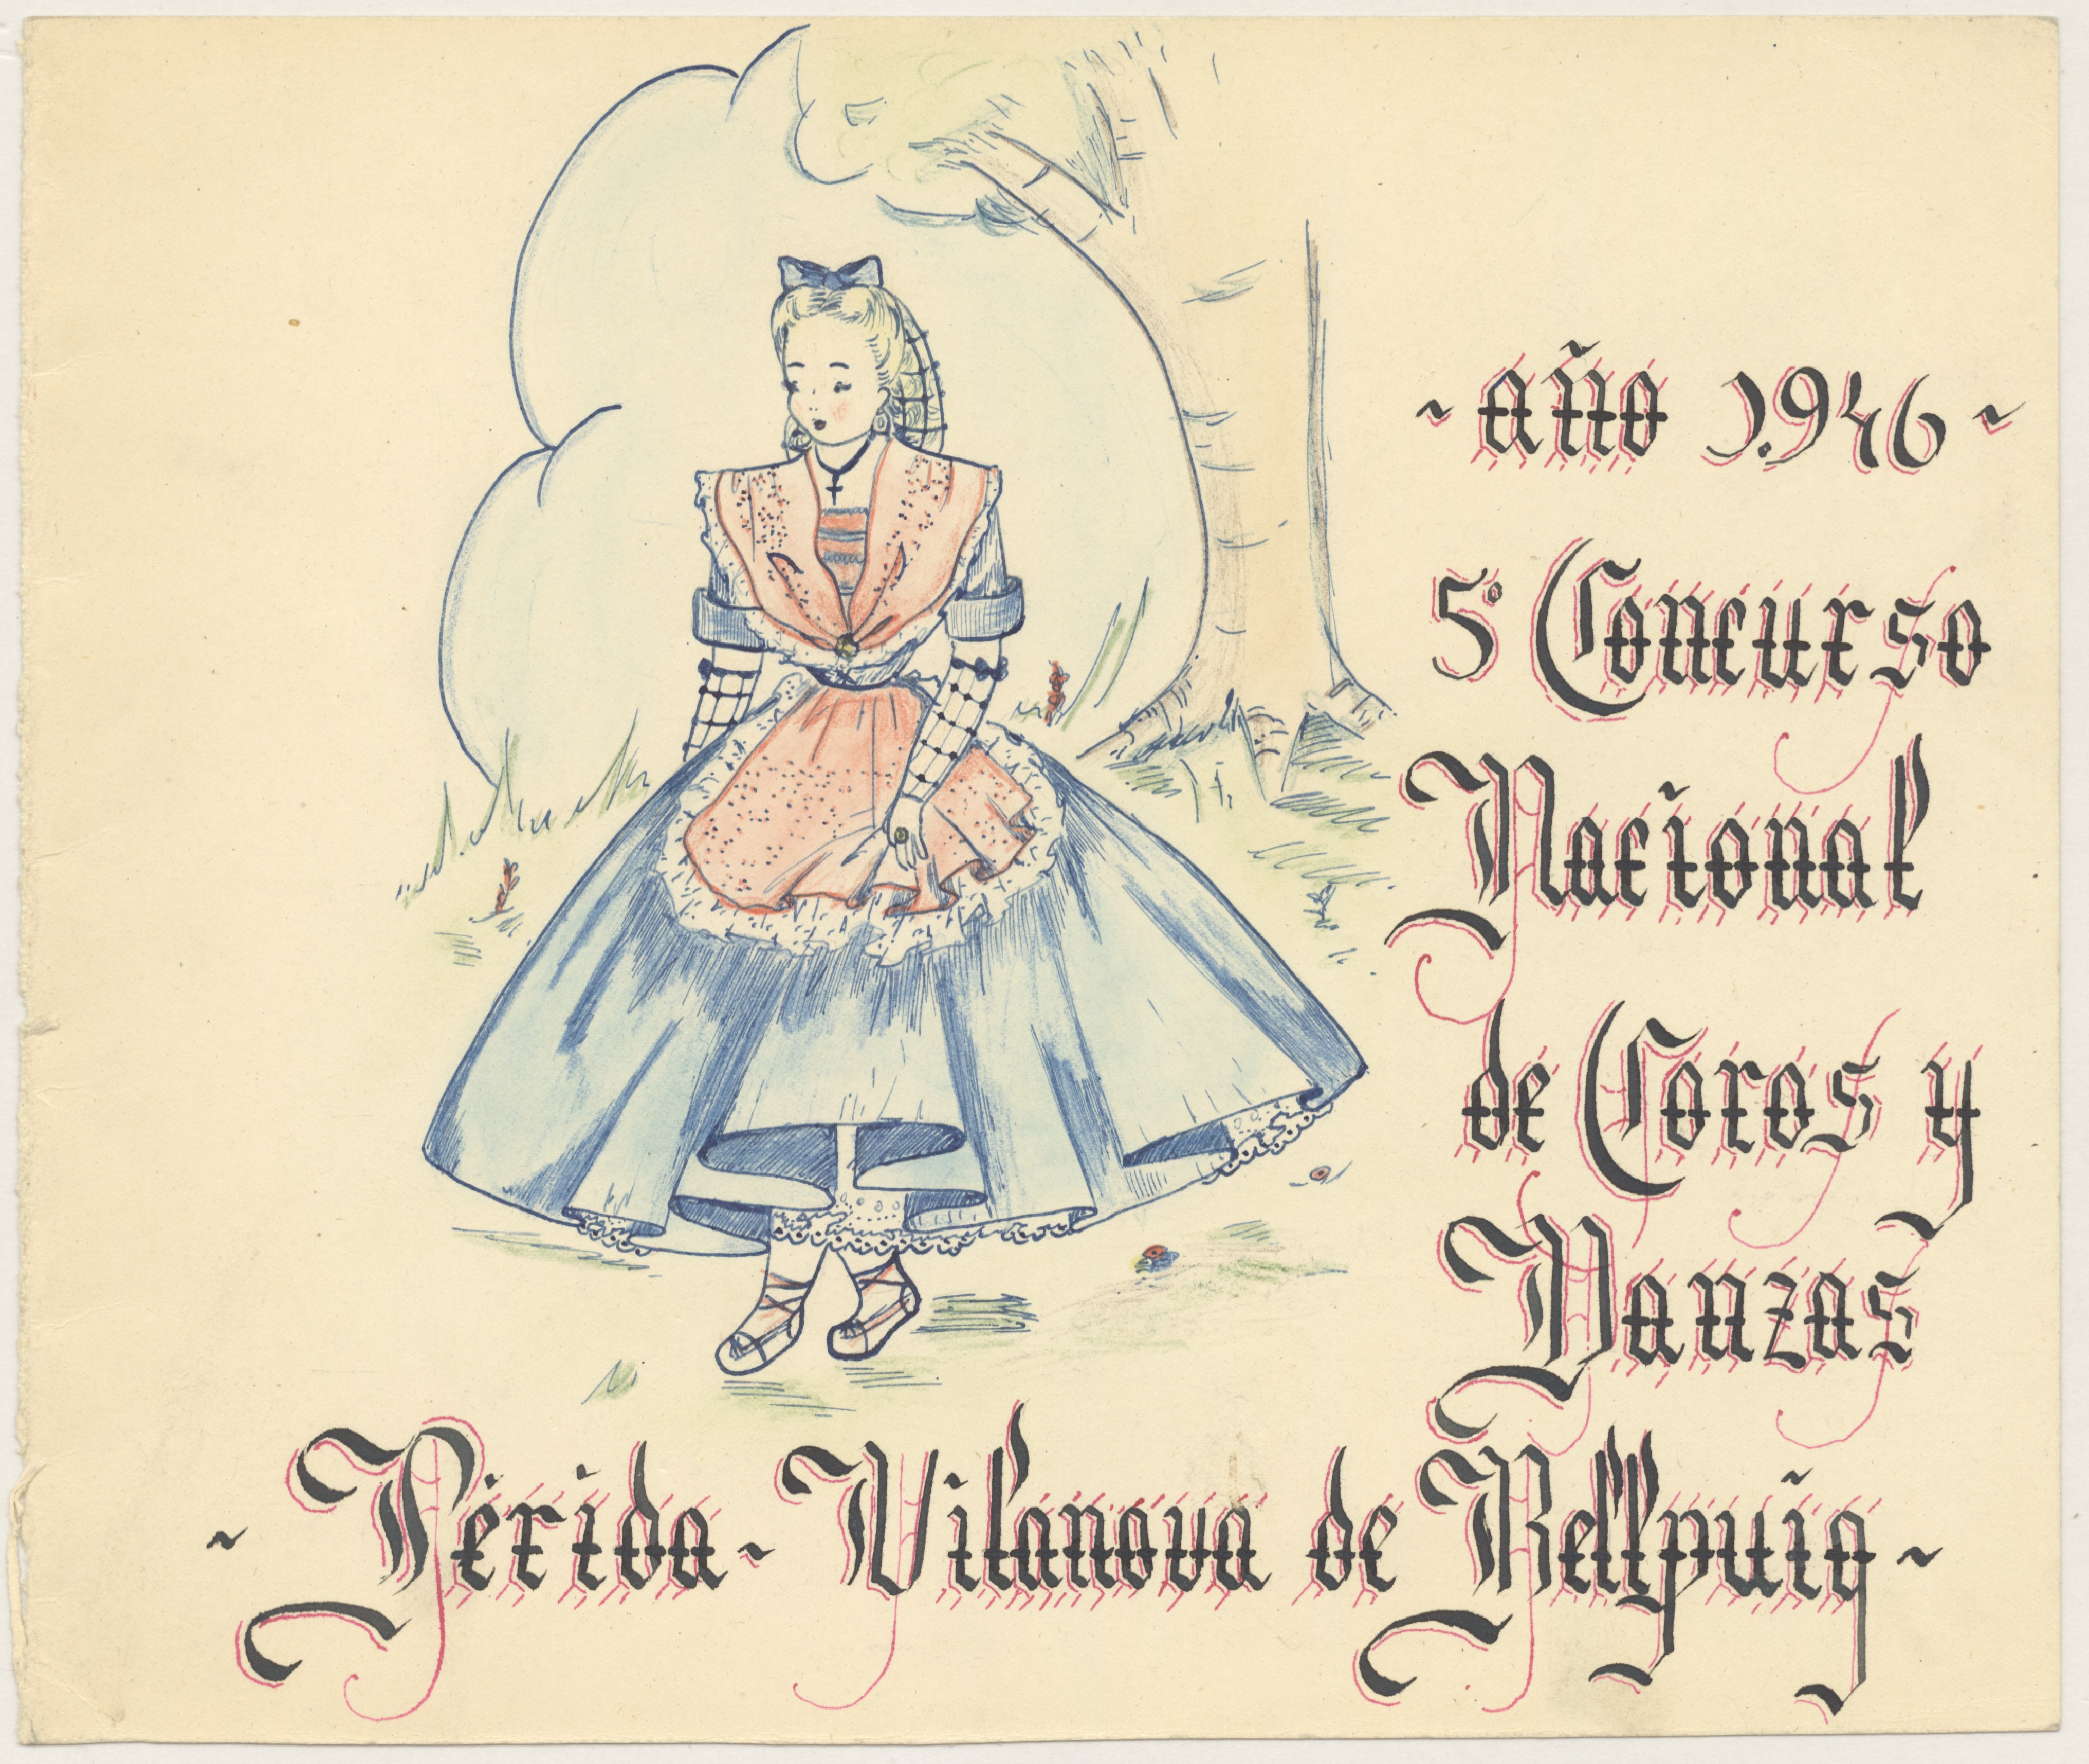 ~ año 1.946 ~
5º Concurso
Nacional
de Coros y
Danzas
~ Lérida ~ Vilanova de Bellpuig ~